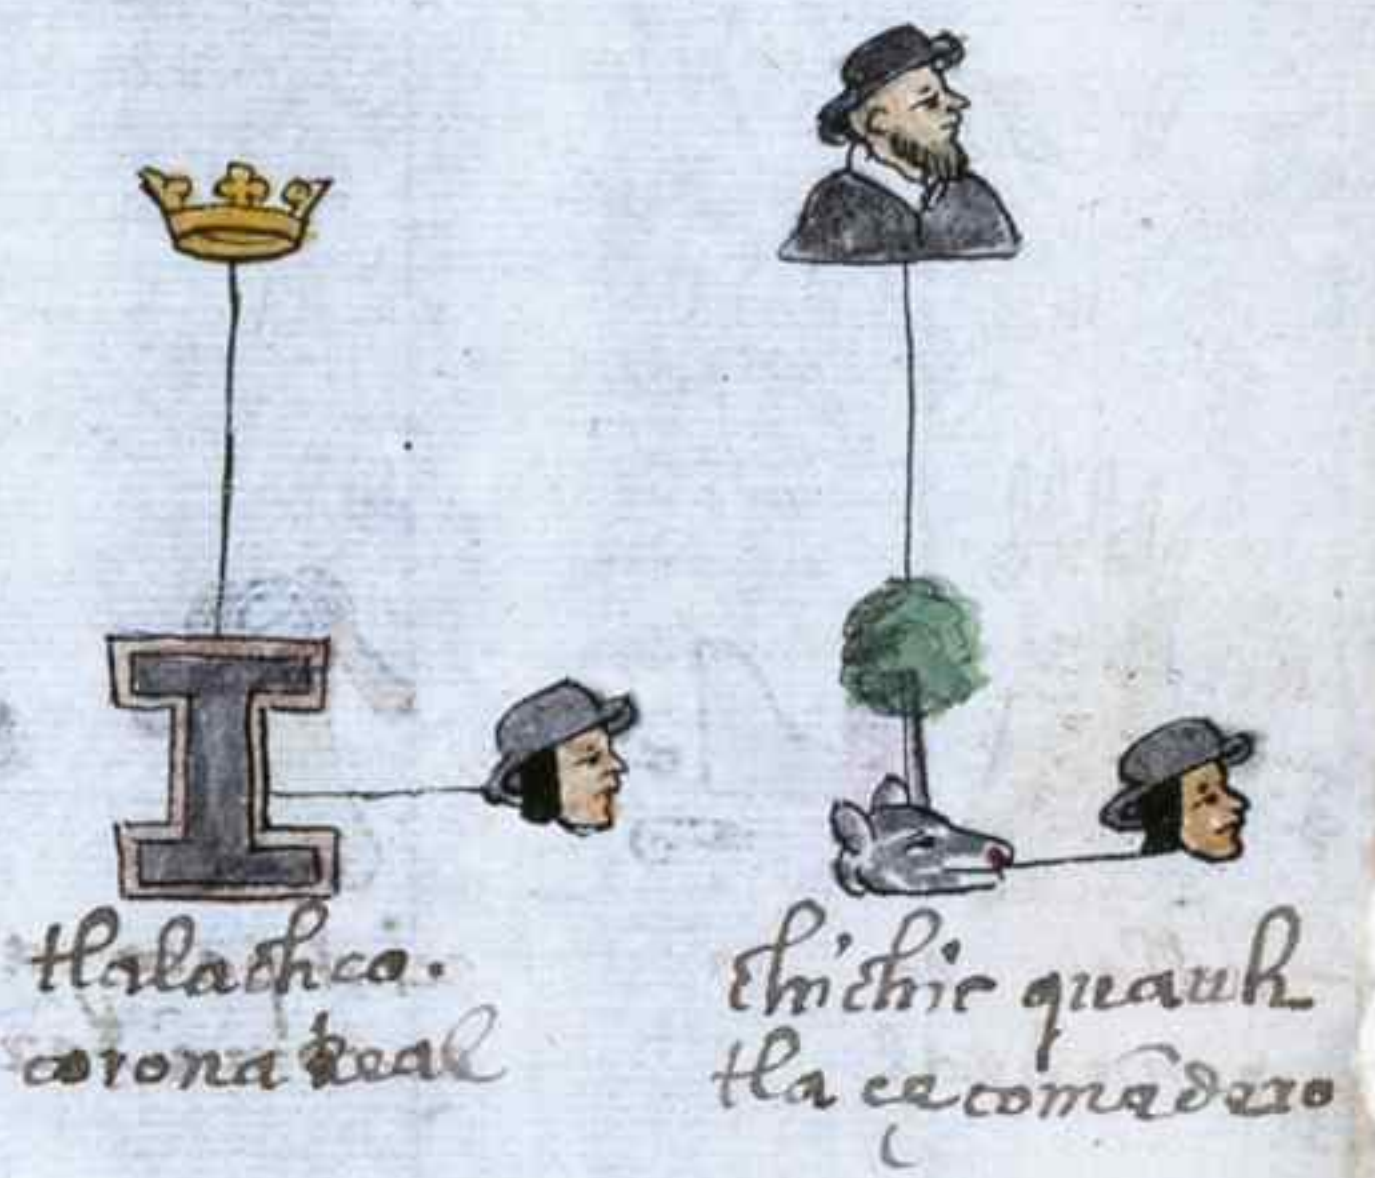 tlalachco.
corona real
chichic quauh
tla çe comādero